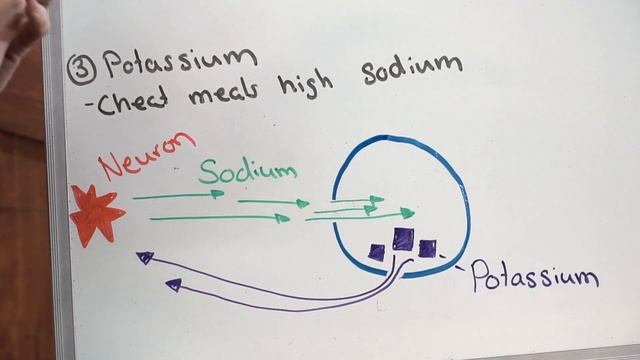 ③ Potassium
- Cheat meals high sodium
Neuron
Sodium
Potassium